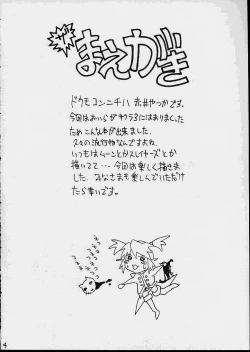 ザ
まえがき
ドウモコンニチハ 赤井やつかです。
今回はおいらがサクラ3にはまりまくった
ためこんな本が出来ました
久々の流行物なんですよね。
いつもはムーンとかスレイヤーズとか
描いてて・・・今回は楽しく描きま
した。みなさまも楽しんでいただけ
たら幸いです。
4